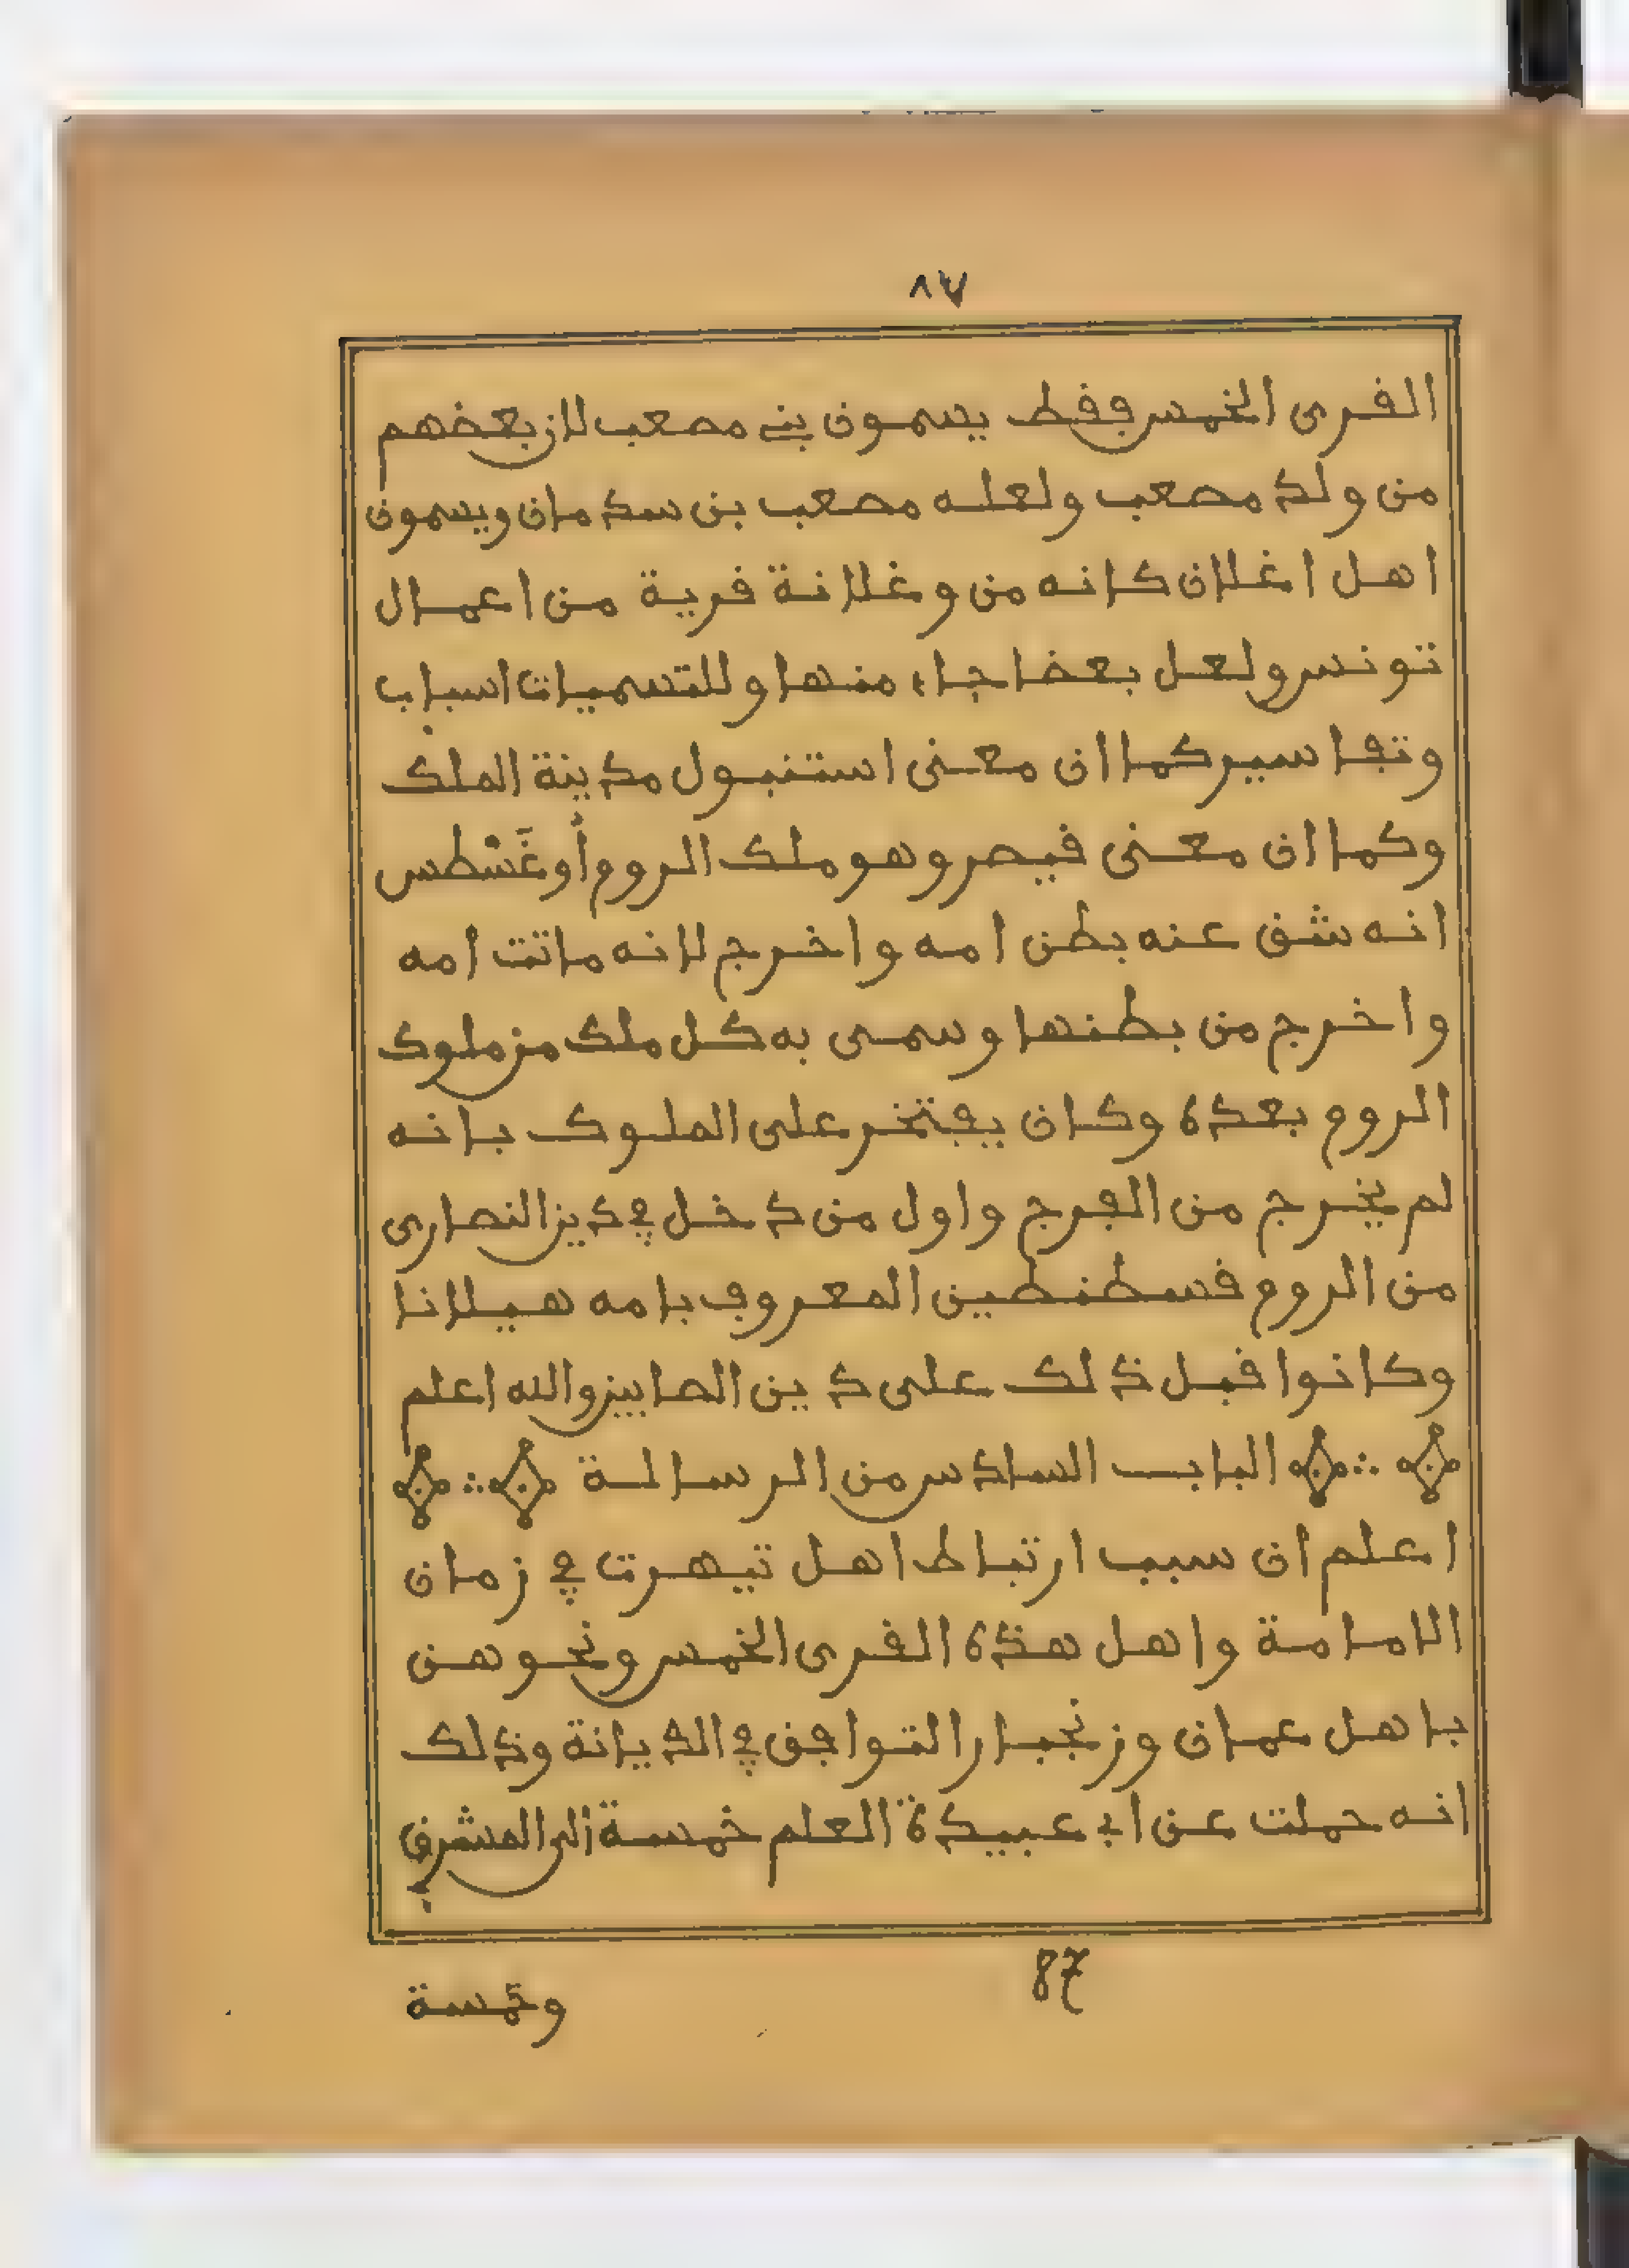 ٨٧
القرى الخمس فقط يسمون بني مصعب لان بعضهم
من ولد مصعب ولعله مصعب بن سدمان ويسمون
اهل اغلان كانه من وغلانة قرية من اعمال
تونس ولعل بعضا جاء منها وللتسميات اسباب
وتفاسير كما ان معنى استنبول مدينة الملك
وكما ان معنى قيصر وهو ملك الروم أوغَسْطس
انه شق عنه بطن امه واخرج لانه ماتت أمه
واخرج من بطنها وسمى به كل ملك من ملوك
الروم بعده وكان يفتخر على الملوك بانه
لم يخرج من الفرج واول من دخل في دين النصارى
من الروم قسطنطين المعروف بامه هيلانا
وكانوا قبل ذلك على دين الصابين والله اعلم
الباب السادس من الرسالة
اعلم أن سبب ارتباط اهل تيهرت في زمان
الامامة واهل هذه القرى الخمس ونحوهن
باهل عمان وزنجبار التوافق في الديانة وذلك
انه حملت عن ابي عبيدة العلم خمسة إلى المشرق
87
وخمسة